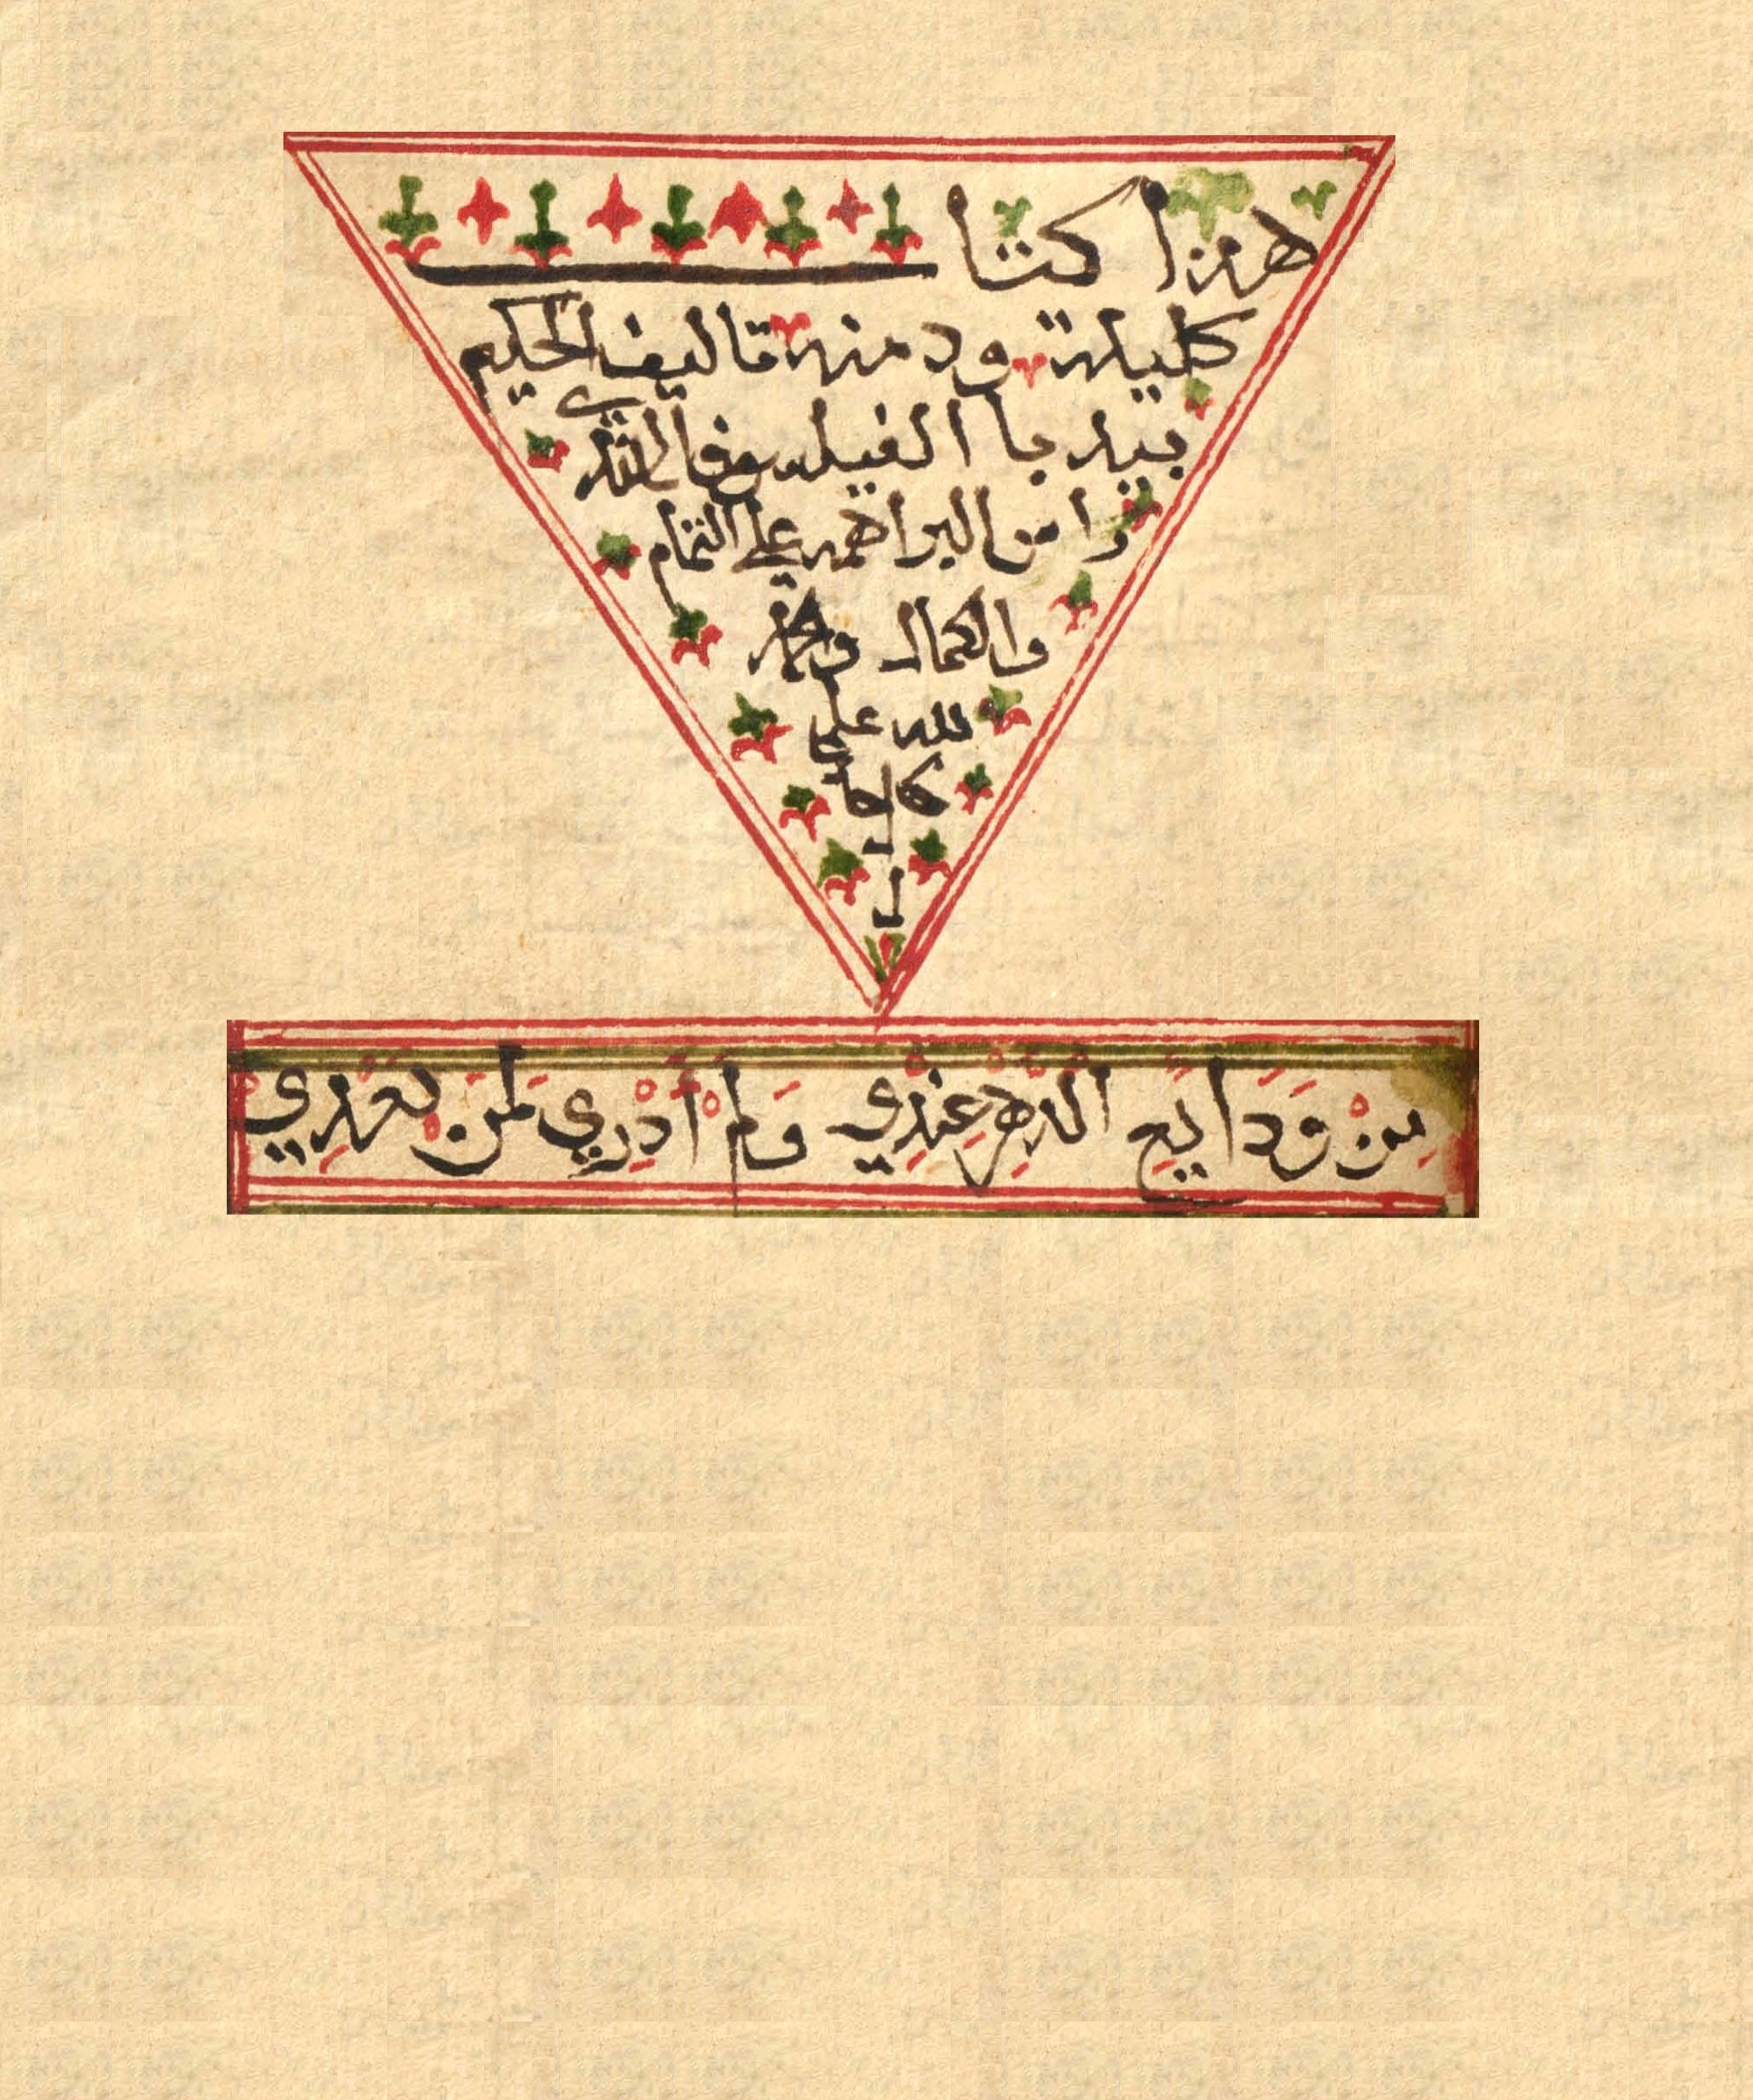 هذا كتاب
كليلة ودمنه تاليف الحكيم
بيدبا الفيلسوف الذي
را من البراهمه على التمام
والكمال والحمد
لله على
كل حا
ل
مِنْ وَدَايِعِ الدَّهْرِ عِنْدِي وَلَمْ أَدْرِي لِمَنْ بَعْدِي